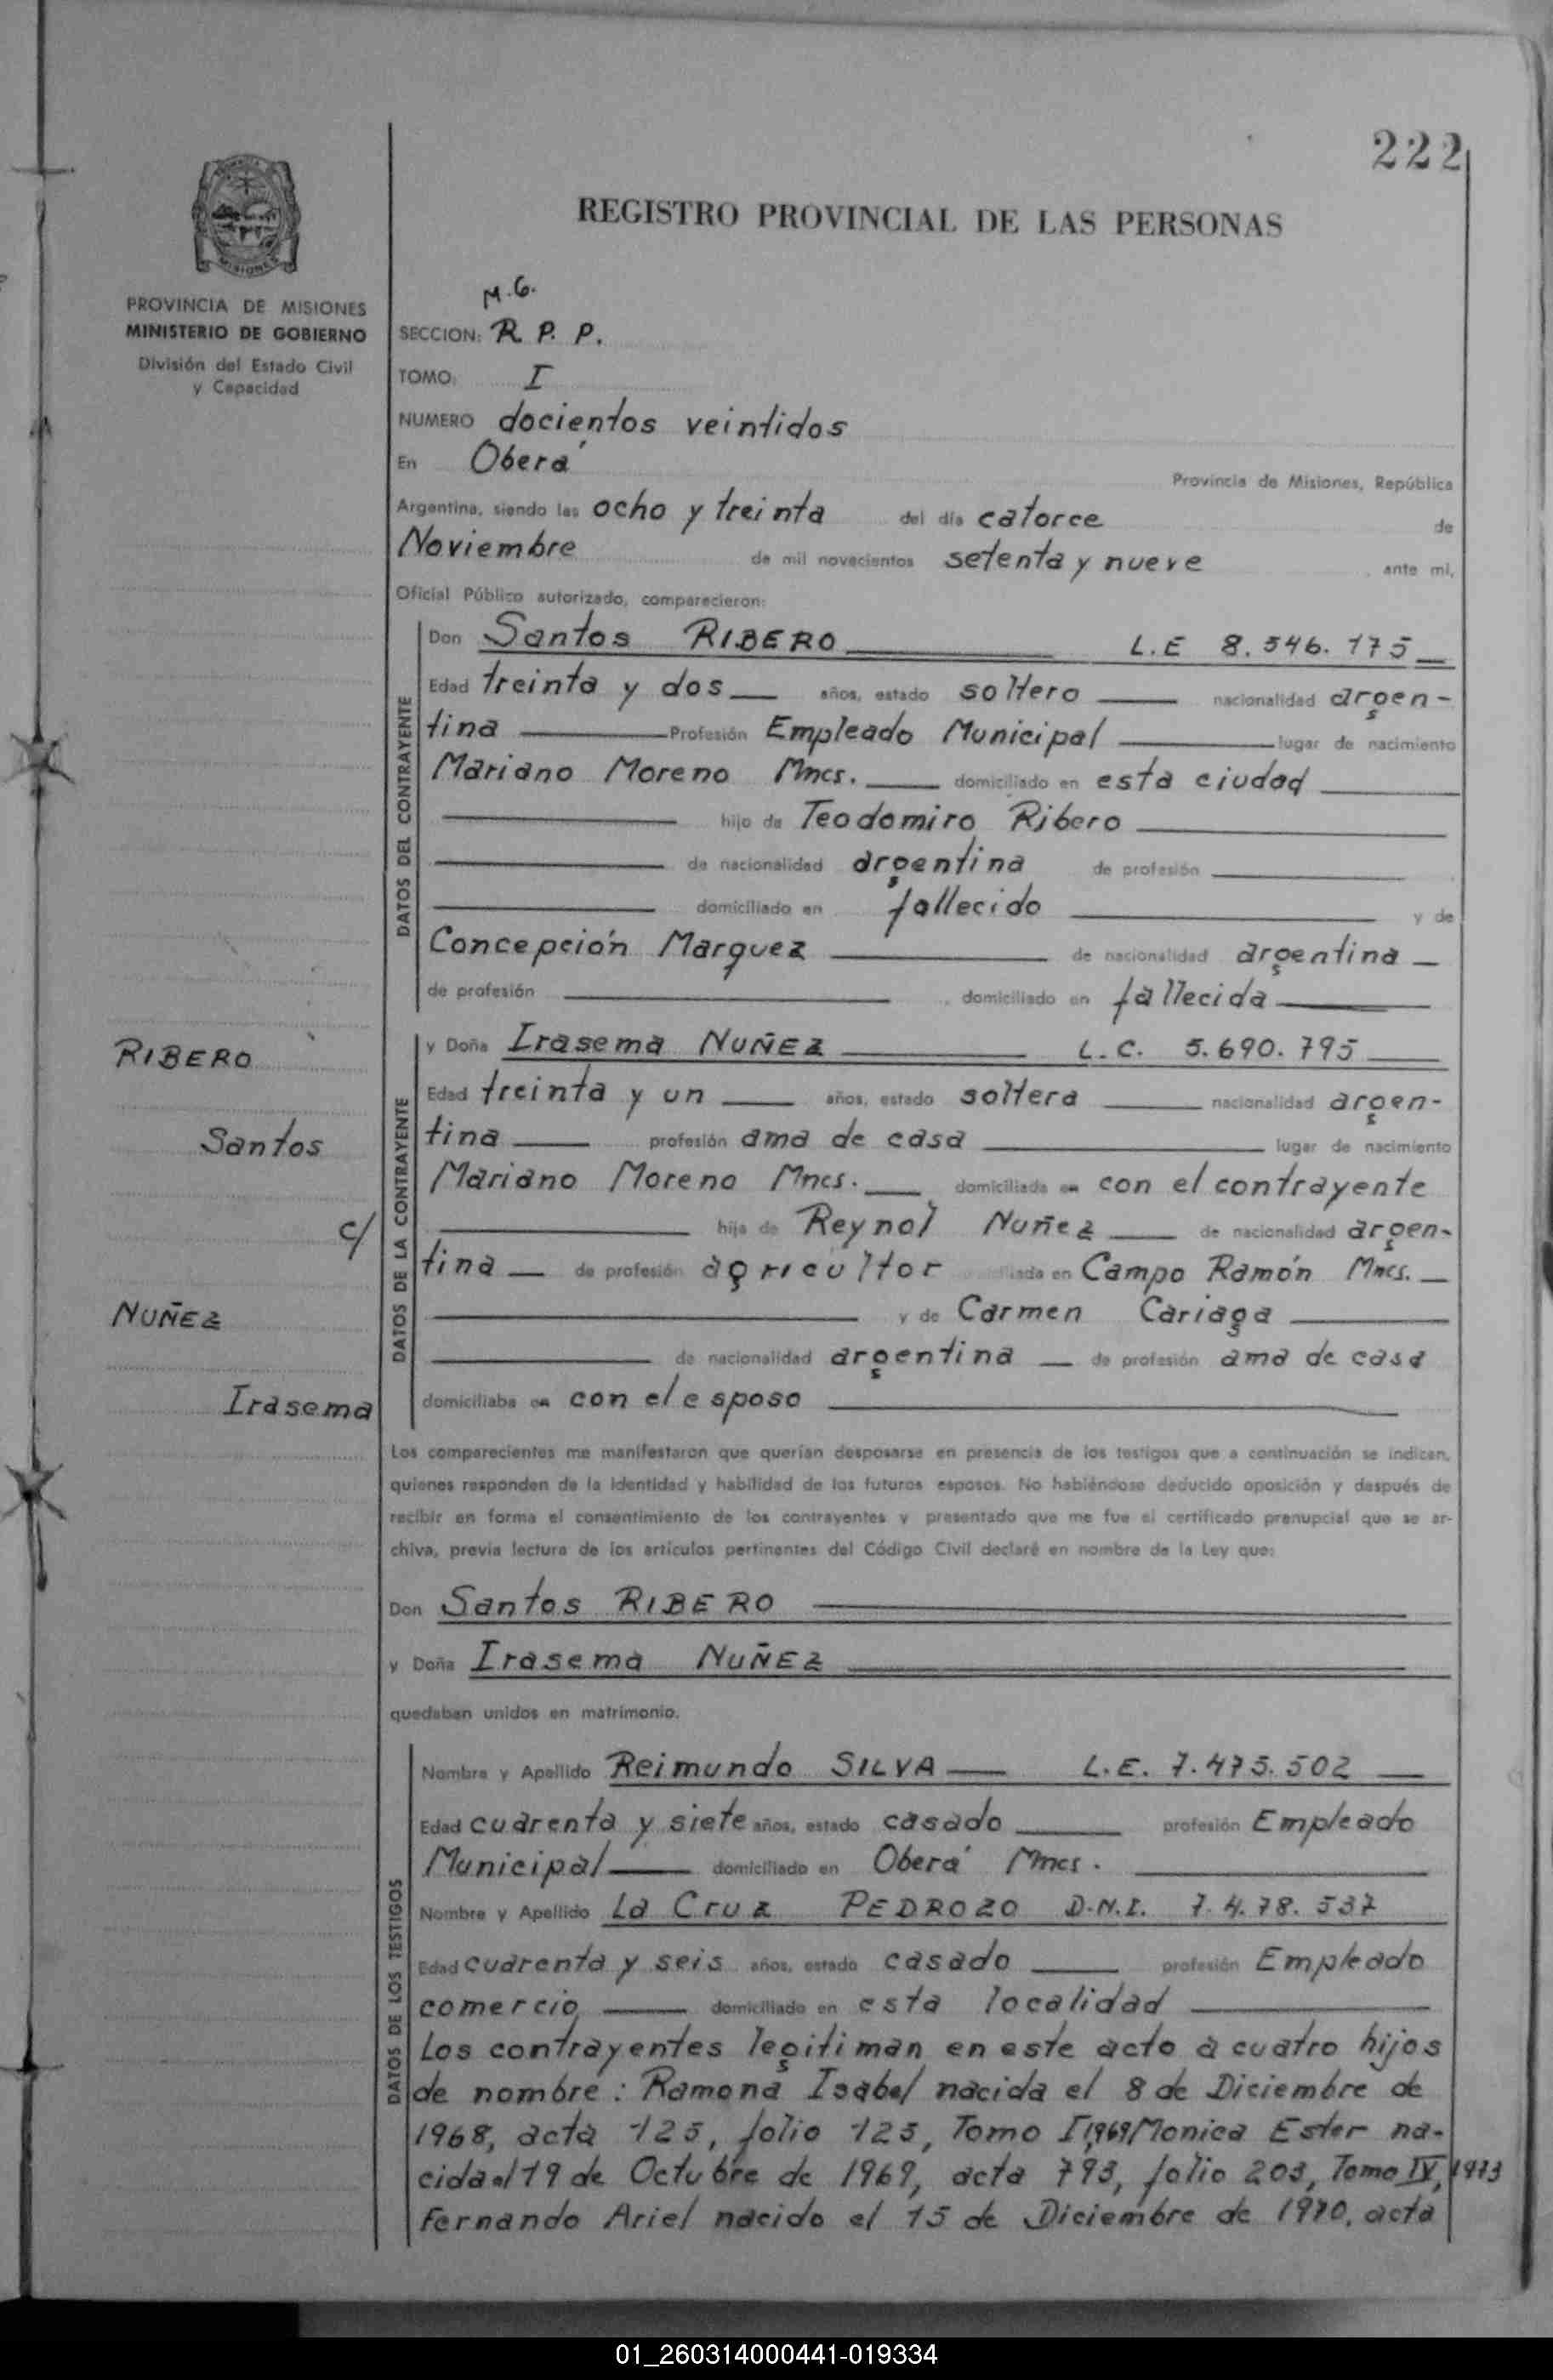 222
REGISTRO PROVINCIAL DE LAS PERSONAS
MISIONES
PROVINCIA DE MISIONES
MINISTERIO DE GOBIERNO
División del Estado Civil
y Capacidad
M.G.
SECCION: R. P. P.
TOMO: I
NUMERO docientos veintidos
En Oberá
Provincia de Misiones, República
Argentina, siendo las ocho y treinta del día catorce de
Noviembre de mil novecientos setenta y nueve ante mi,
Oficial Público autorizado, comparecieron:
DATOS DEL CONTRAYENTE
Don Santos RIBERO L.E 8.546.175
Edad treinta y dos años, estado soltero nacionalidad argen-
tina Profesión Empleado Municipal lugar de nacimiento
Mariano Moreno Mncs. domiciliado en esta ciudad
hijo de Teodomiro Ribero
de nacionalidad argentina de profesión
domiciliado en fallecido y de
Concepción Marquez de nacionalidad argentina
de profesión , domiciliado en fallecida
RIBERO
Santos
c/
NUÑEZ
Irasema
DATOS DE LA CONTRAYENTE
y Doña Irasema NUÑEZ L.C. 5.690.795
Edad treinta y un años, estado soltera nacionalidad argen-
tina profesión ama de casa lugar de nacimiento
Mariano Moreno Mncs. domiciliada en con el contrayente
hija de Reynol Nuñez de nacionalidad argen-
tina de profesión agricultor iliada en Campo Ramón Mncs.
y de Carmen Cariaga
de nacionalidad argentina de profesión ama de casa
domiciliaba en con el esposo
Los comparecientes me manifestaron que querían desposarse en presencia de los testigos que a continuación se indican,
quienes responden de la identidad y habilidad de los futuros esposos. No habiéndose deducido oposición y después de
recibir en forma el consentimiento de los contrayentes y presentado que me fue el certificado prenupcial que se ar-
chiva, previa lectura de los artículos pertinentes del Código Civil declaré en nombre de la Ley que:
Don Santos RIBERO
y Doña Irasema NUÑEZ
quedaban unidos en matrimonio.
DATOS DE LOS TESTIGOS
Nombre y Apellido Reimundo SILVA L.E. 7.475.502
Edad cuarenta y siete años, estado casado profesión Empleado
Municipal domiciliado en Oberá Mncs.
Nombre y Apellido La Cruz PEDROZO D.N.I. 7.4.78.537
Edad cuarenta y seis años, estado casado profesión Empleado
comercio domiciliado en esta localidad
Los contrayentes legitiman en este acto a cuatro hijos
de nombre: Ramona Isabel nacida el 8 de Diciembre de
1968, acta 125, folio 125, Tomo I,1969/Monica Ester na-
cida el 19 de Octubre de 1969, acta 793, folio 203, Tomo IV, 1973
Fernando Ariel nacido el 15 de Diciembre de 1970, acta
01_260314000441-019334